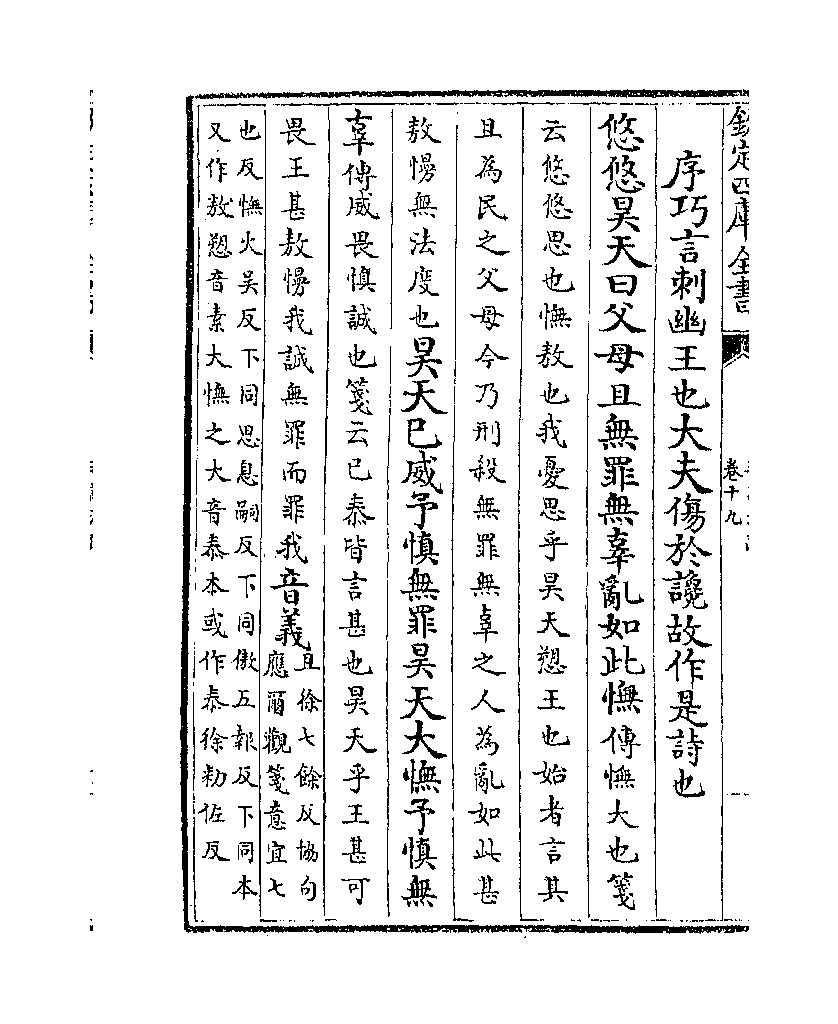 欽定四庫全書
卷十九
序巧言刺幽王也大夫傷於讒故作是詩也
悠悠昊天曰父母且無罪無辜亂如此憮傳憮大也箋
云悠悠思也憮敖也我憂思乎昊天愬王也始者言其
且為民之父母今乃刑殺無罪無辜之人為亂如此甚
敖慢無法度也昊天已威予慎無罪昊天大憮予慎無
辜傳威畏慎誠也箋云已泰皆言甚也昊天乎王甚可
畏王甚敖慢我誠無罪而罪我音義
且徐七餘反協句
應爾觀箋意宜七
也反憮火吳反下同思息嗣反下同傲五報反下同本
又作敖愬音素大憮之大音泰本或作泰徐勑佐反